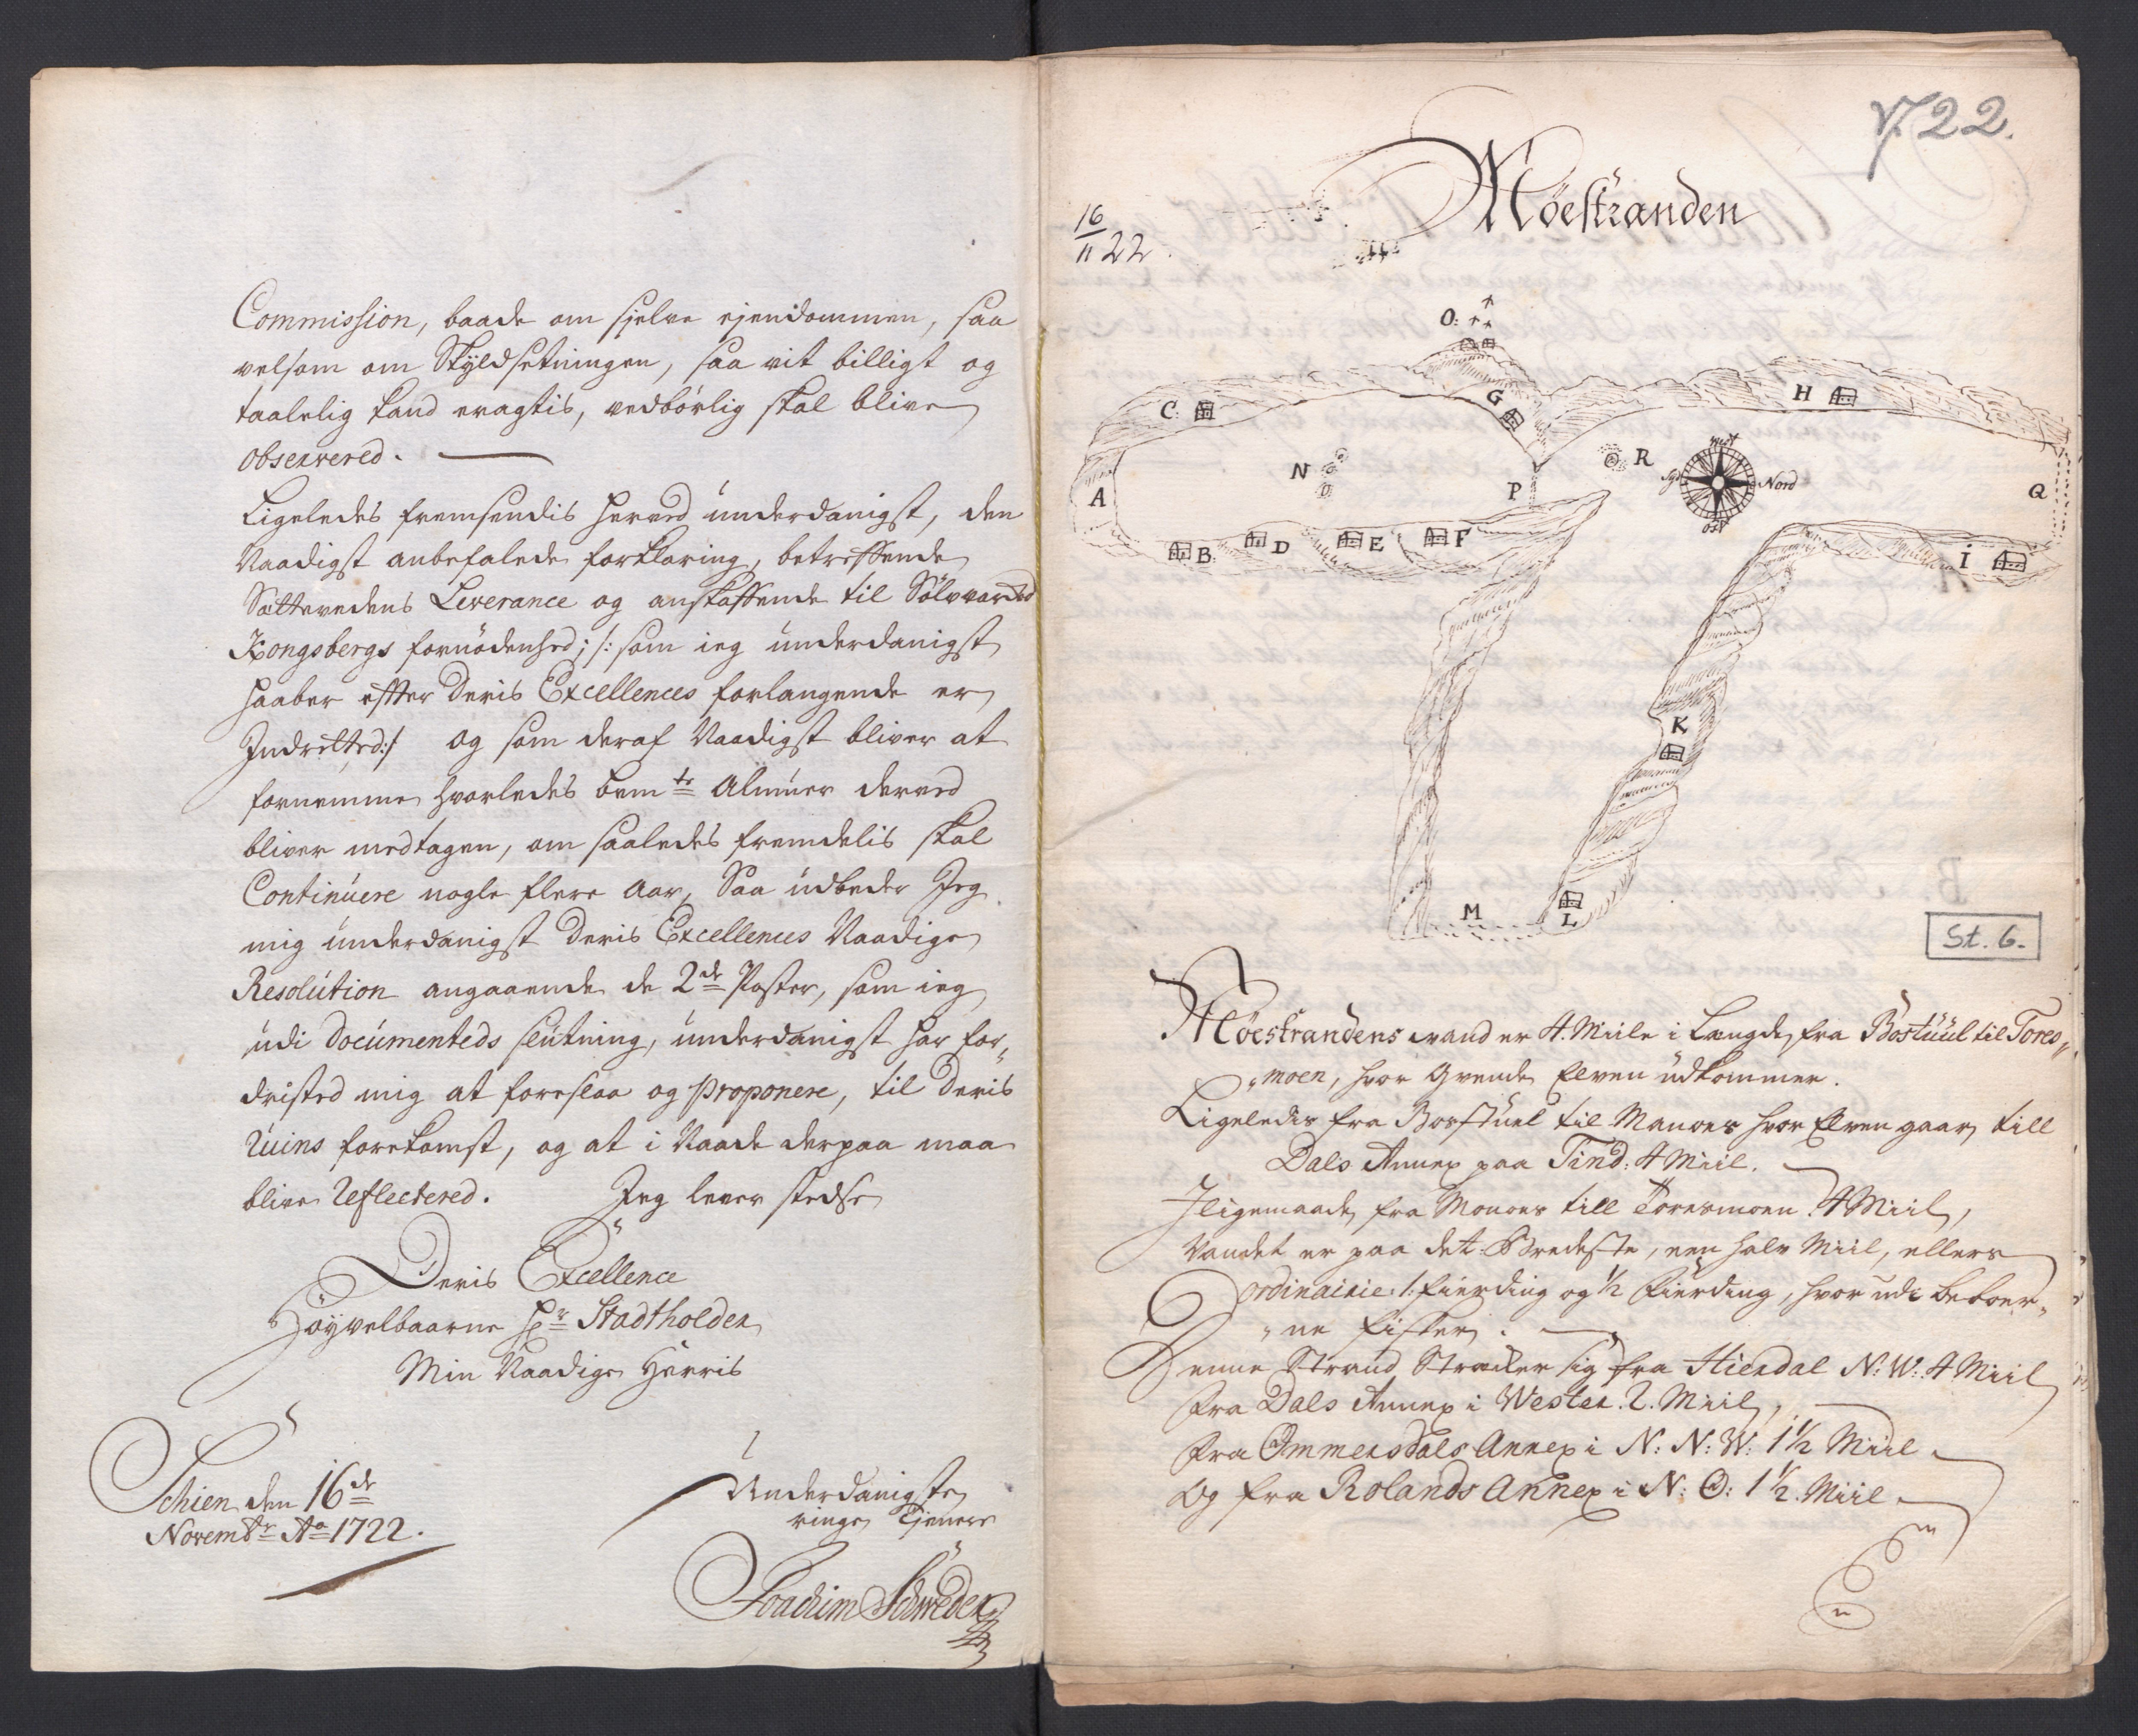 Commission, baade om sielve ejendommen, saa
velsom om Skyldsetningen, saa vit billigt og
taalelig kand eragtis, vedbörlig skal blive
observered.
Ligeledes fremsendis herved underdanigst, den
Naadigst anbefalede forklaring, betreffende
Sættevedens Leverance og anskaffende til Sölvværked
Kongsbergs fornödenhed; /: som ieg underdanigst
haaber efter Deris Excellences forlangende er
Indretted:/ og som deraf Naadigst bliver at
fornemme hvorledes bemte Almuer derved
bliver medtagen, om saaledes fremdelis skal
Continuere nogle flere Aar, Saa udbeder Jeg
mig underdanigst Deris Excellences Naadige
Resolution angaaende de 2de Poster, som ieg
udi Documenteds slutning, underdanigst har for„
dristed mig at foreslaa og proponere, til Deris
Ruins forekomst, og at i Naade derpaa maa
blive Reflectered. Jeg lever stedse
Deris Excellence
Höyvelbaarne Hr Stadtholder
Min Naadige Herris
Schien den 16de
Novembr Ao 1722.
Underdanigste
ringe Tienere
Joachim Schweder
1722.
Möestranden
16/11 22
O:
C:
G
H
N
R
West
Syd
Nord
Ost
A
P
Q
B:
D
E
F
I
K
M
L
St. 6.
Möestrandens vand er 4. Miile i Længde, fra Bostuul til Tores„
„moen, hvor Qvende Elven udkommer.
Ligeledis fra Borstuul til Manoer hvor Elven gaar till
Dals Annex paa Tind: 4 Miil.
Iligemaade fra Monoer till Toresmoen 4 Miil,
Vandet er paa det Bredeste, een halv Miil, ellers
ordinairie 1. fierding og ½ fierding, hvor udi beboer„
„ne fisker.
Denne Strand Stræcker sig fra Hierdal N: W: 4 Miil
Fra Dals Annex i Wester. 2. Miil,
Fra Ommersdals Annex i N: N: W: 1½ Miil
Og fra Rolands Annex i N: O: 1½ Miil